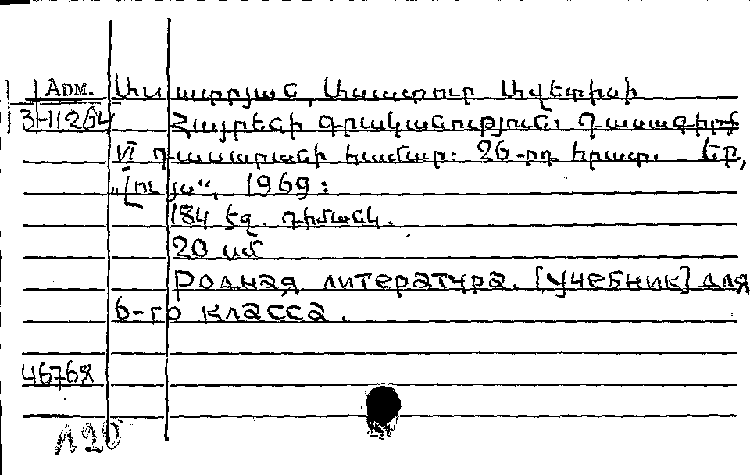 Арм. Աստվատուր Ավետիսի
3-11264 Հայրենի գրականություն։ Դասագիրք
VI դասարանի համար։ 26-րդ հրատ. Եր,
„Լույս“, 1969։
184 էջ. դիմանկ.
20 սմ
Родная литература. [Учебник] для
6-го класса.
46768
Л20